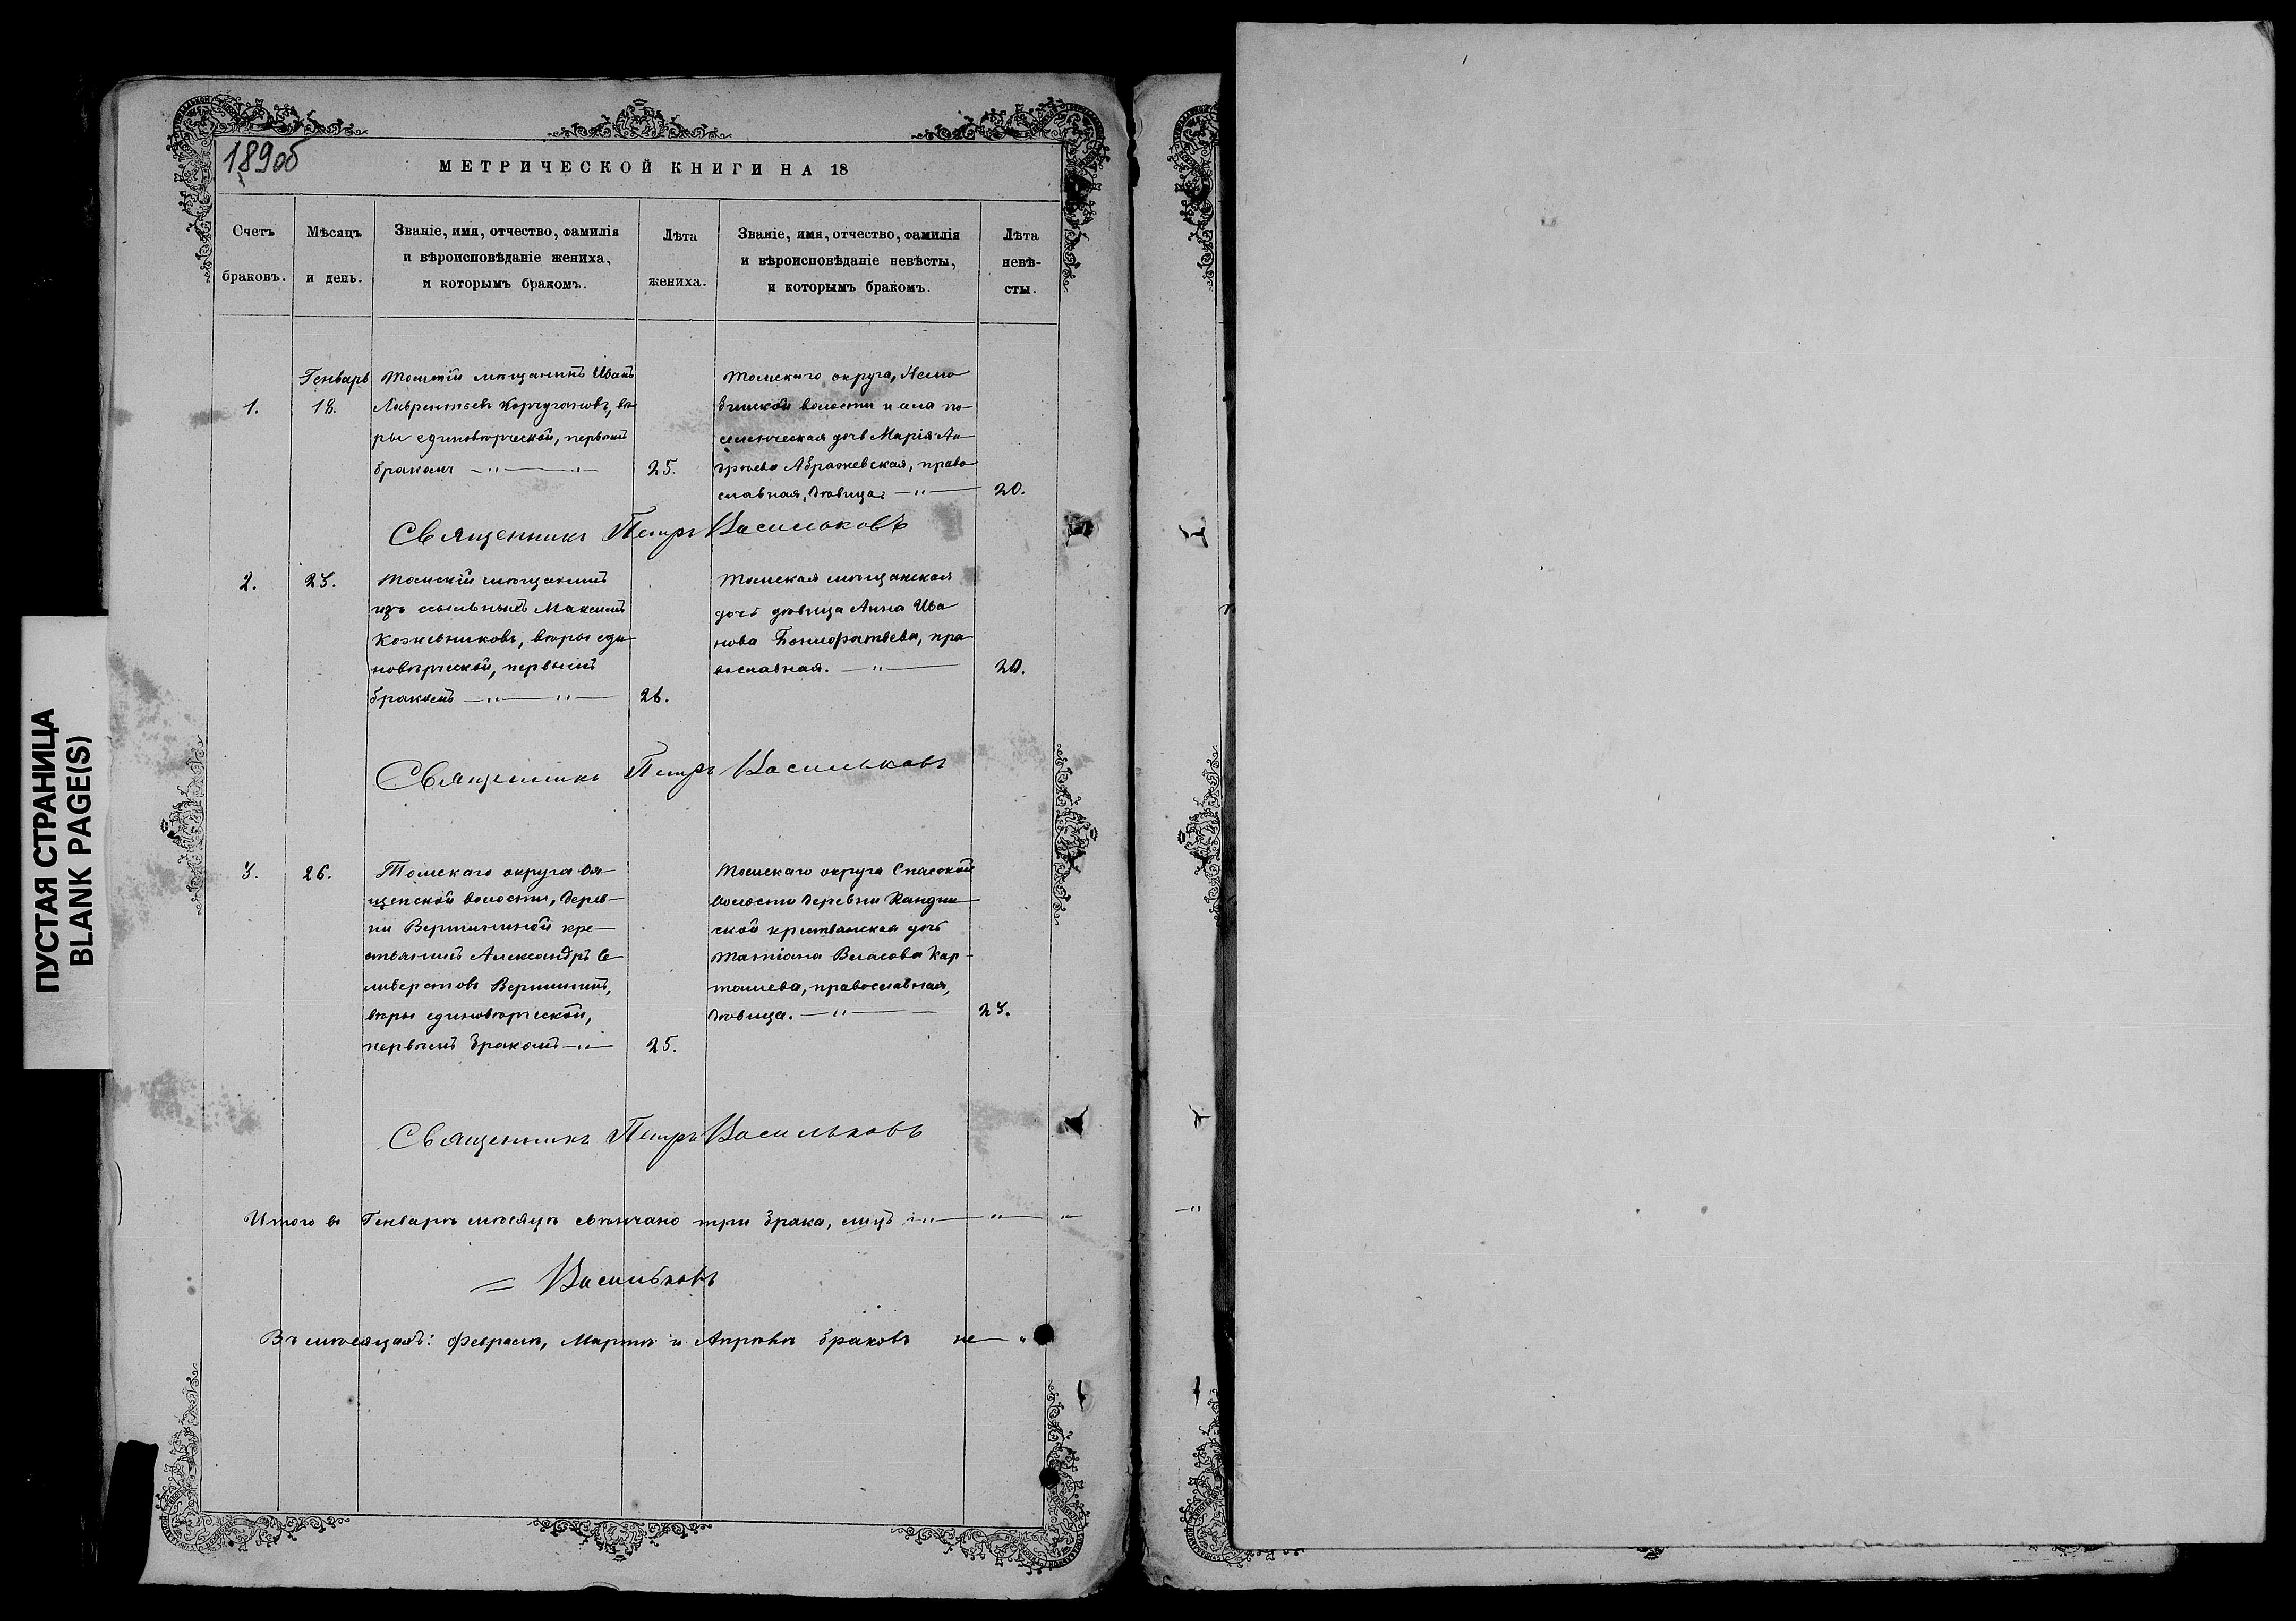 189об
МЕТРИЧЕСКОЙ КНИГИ НА 18
Счетъ браковъ.
Мѣсяцъ и день.
Званіе, имя, отчество, фамилія
и вѣроисповѣданіе жениха,
и которымъ бракомъ.
Лѣта жениха.
Званіе, имя, отчество, фамилія
и вѣроисповѣданіе невѣсты,
и которымъ бракомъ.
Лѣта
невѣ-
сты.
1.
Генварь
18.
Томскій мѣщанинъ Иванъ
Лаврентьевъ Корчугановъ, вѣ
ры единовѣрческой, первымъ
бракомъ
25.
Томскаго округа,
волости и села по-
селенческая дочь Марія
Абражевская, право
славная, дѣвица
20.
Священникъ Петръ Васильковъ
2.
23.
Томскій мѣщанинъ
изъ ссыльныхъ Максимъ
Кожевниковъ, вѣры еди
новѣрческой, первымъ
бракомъ
26.
Томская мѣщанская
дочь дѣвица Анна Ива
нова Бонифатьева, пра
вославная.
20.
Священникъ Петръ Васильковъ
3.
26.
Томскаго округа Оя-
шенской волости, дерев-
ни Вершининой кре-
стьянинъ Александръ Се
ливерстовъ Вершининъ,
вѣры единовѣрческой,
первымъ бракомъ
25.
Томскаго округа Спасской
волости деревни Кандин
ской крестьянская дочь
Татіана Власова Кар-
ташева, православная,
дѣвица.
23.
Священникъ Петръ Васильковъ
Итого въ Генварѣ мѣсяцѣ свѣнчано три брака,
Васильковъ
Въ мѣсяцахъ: Февралѣ, Мартѣ и Апрѣлѣ браковъ не
ПУСТАЯ СТРАНИЦА
BLANK PAGE(S)